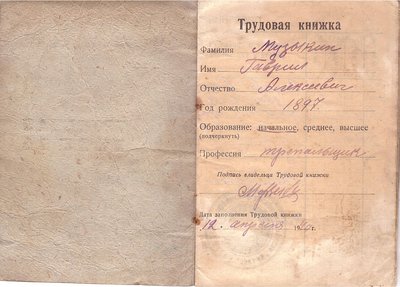 Трудовая книжка
Фамилия Музыкин
Имя Гаврил
Отчество Алексеевич
Год рождения 1897
Образование: начальное, среднее, высшее
(подчеркнуть)
Профессия трепальщик
Подпись владельца Трудовой книжки
Дата заполнения Трудовой книжки
12. апреля 19 г.